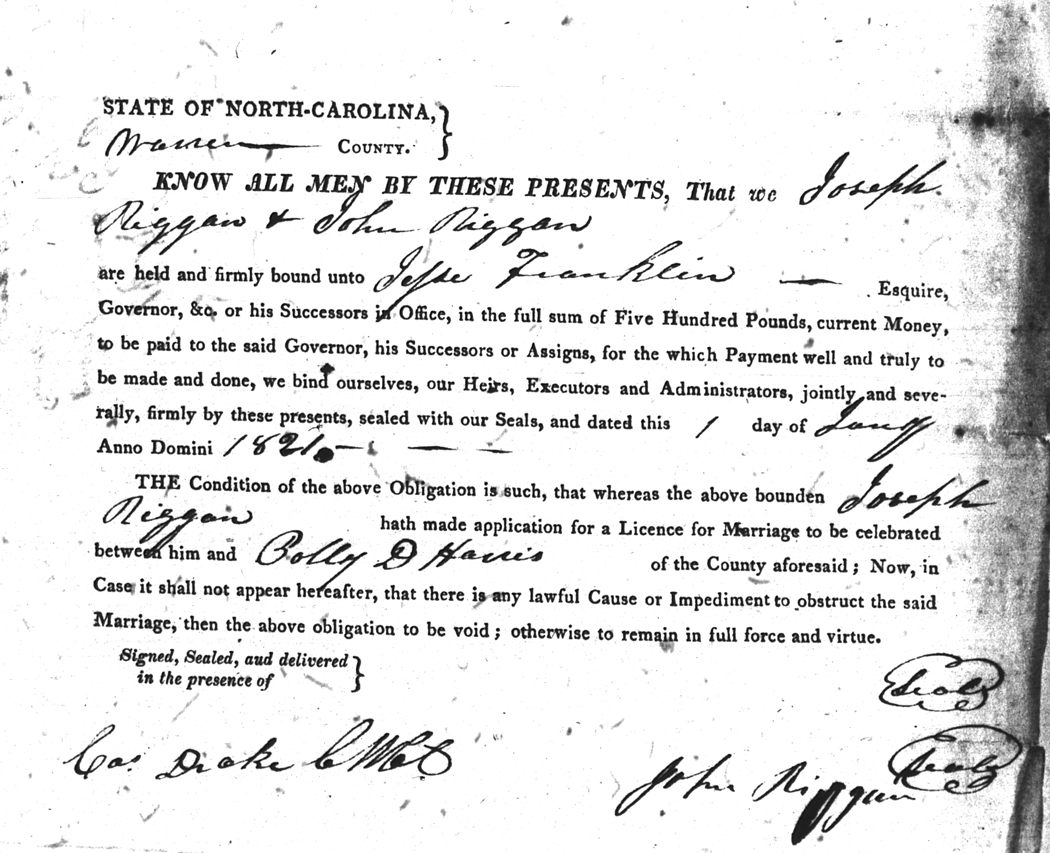 STATE OF NORTH-CAROLINA,
Warren COUNTY.
KNOW ALL MEN BY THESE PRESENTS, That we Joseph
Riggan & John Riggan
are held and firmly bound unto Jesse Franklin — Esquire,
Governor, &c. or his Successors in Office, in the full sum of Five Hundred Pounds, current Money,
to be paid to the said Governor, his Successors or Assigns, for the which Payment well and truly to
be made and done, we bind ourselves, our Heirs, Executors and Administrators, jointly and seve-
rally, firmly by these presents, sealed with our Seals, and dated this 1 day of Jany
Anno Domini 1821.
THE Condition of the above Obligation is such, that whereas the above bounden Joseph
Riggan hath made application for a Licence for Marriage to be celebrated
between him and Polly D Harris of the County aforesaid; Now, in
Case it shall not appear hereafter, that there is any lawful Cause or Impediment to obstruct the said
Marriage, then the above obligation to be void; otherwise to remain in full force and virtue.
Signed, Sealed, aud delivered
in the presence of
Seal
Cas Drake CWCC
Seal
John Riggan